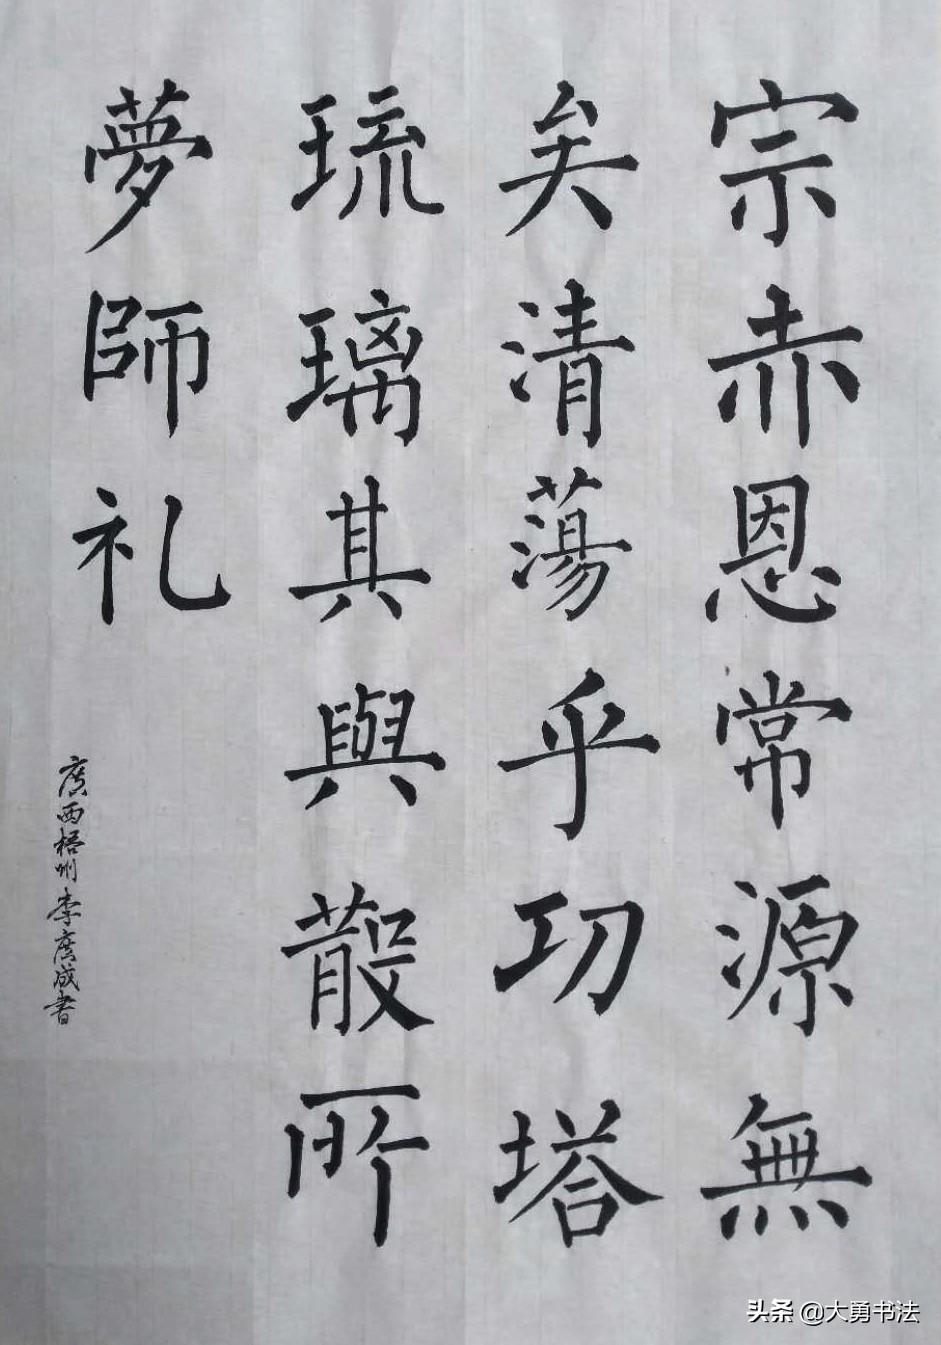 宗赤恩常源無
矣清蕩乎功塔
琉璃其與散所
夢師礼
廣西梧州李廣成書
头条 @大勇书法